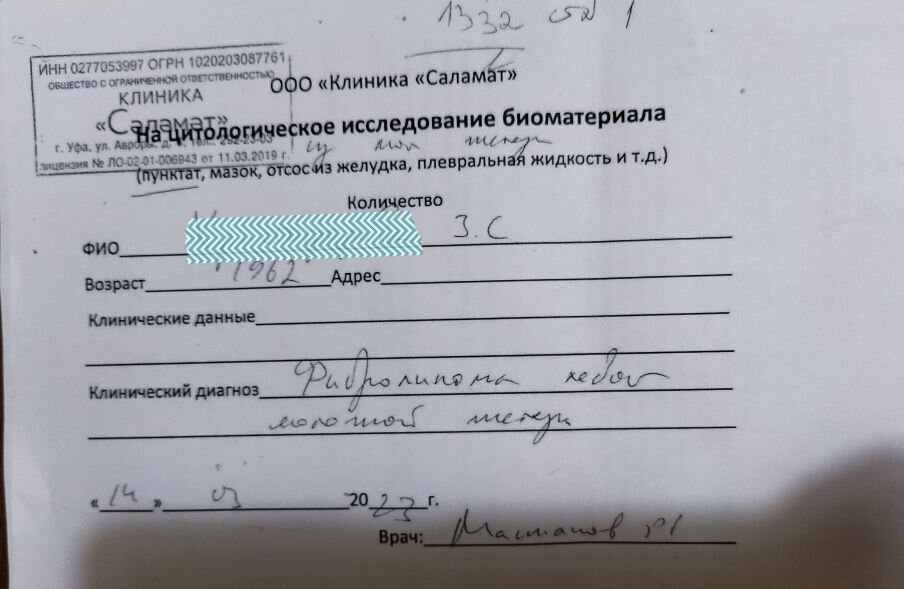 1332 стл 1
ИНН 0277053997 ОГРН 1020203087761
ОБЩЕСТВО С ОГРАНИЧЕННОЙ ОТВЕТСТВЕННОСТЬЮ
КЛИНИКА
«Саламат»
г. Уфа, ул. Авроры, д. тел.: 292-23-03
лицензия № ЛО-02-01-006943 от 11.03.2019 г.
ООО «Клиника «Саламат»
На цитологическое исследование биоматериала
из мол железы
(пунктат, мазок, отсос из желудка, плевральная жидкость и т.д.)
Количество
ФИО З.С
Возраст 1962 Адрес
Клинические данные
Клинический диагноз Фибролипома левой
молочной железы
«14» 03 2023 г.
Врач: